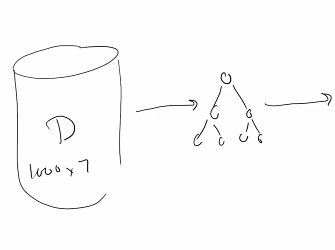 D
1000 x 7